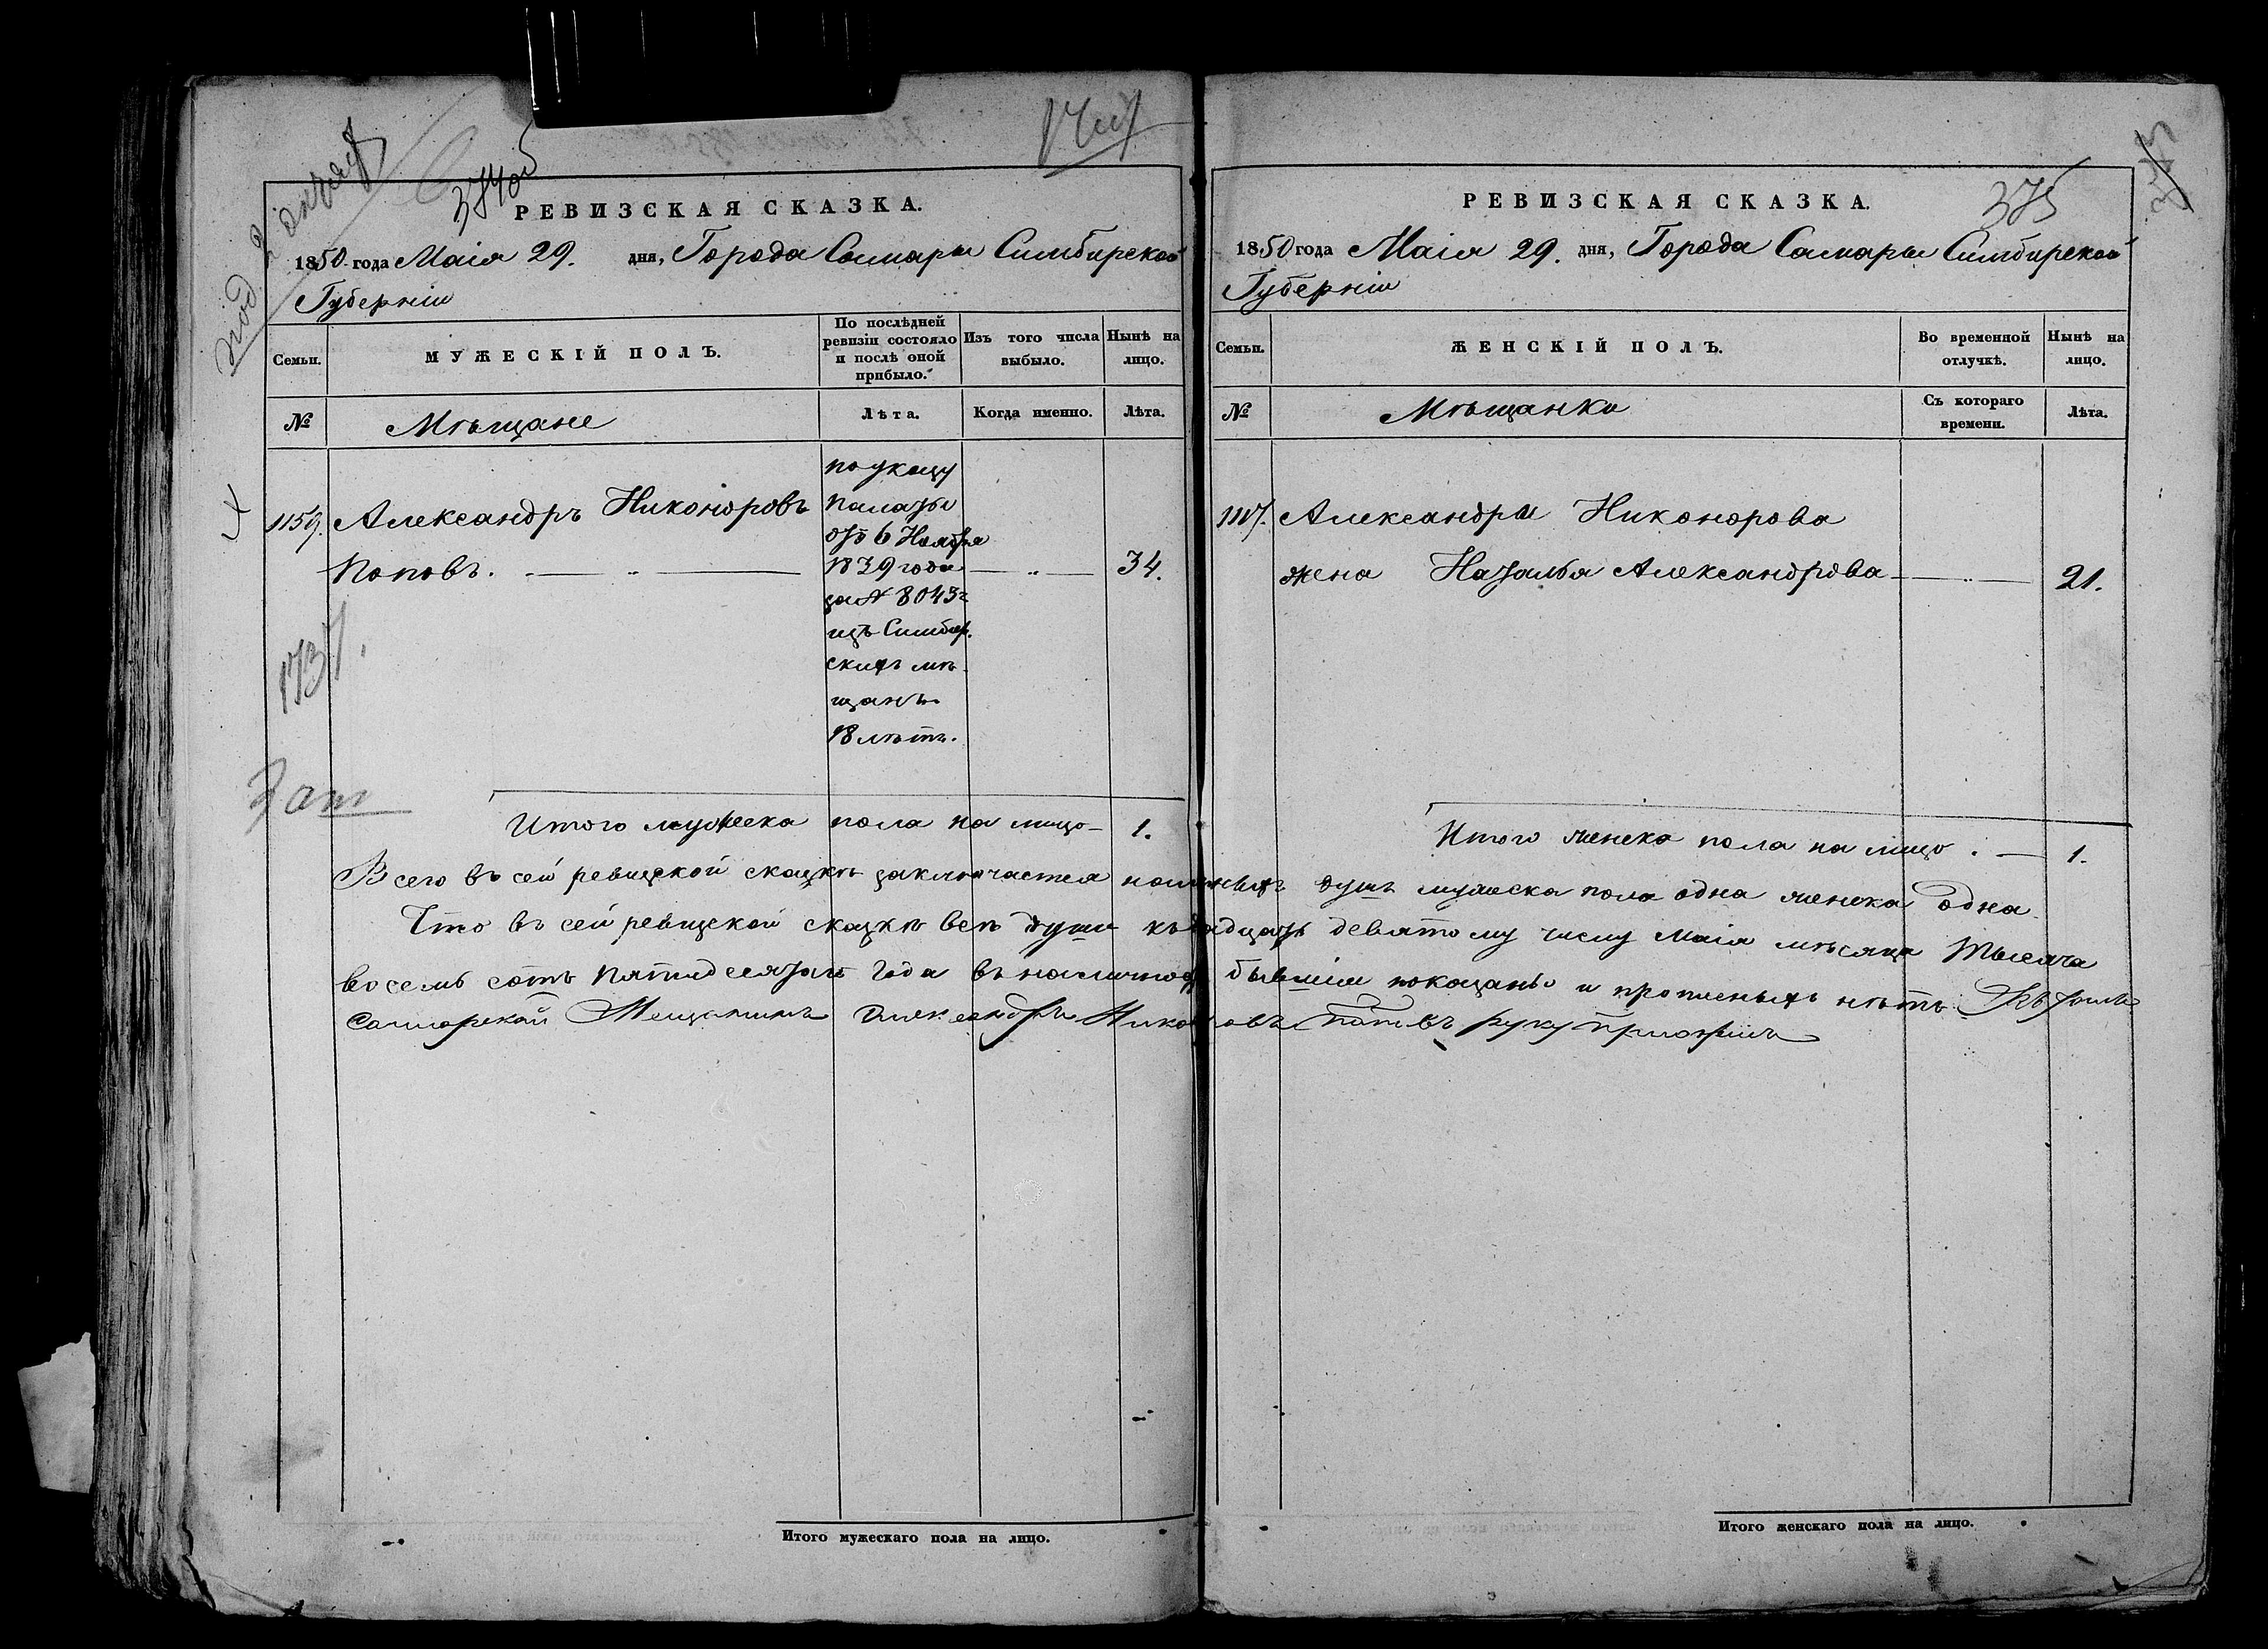 374об
РЕВИЗСКАЯ СКАЗКА.
1850 года Маія 29. дня, Города Самары Симбирской
Губерніи
Семьи.
МУЖЕСКІЙ ПОЛЪ.
По послѣдней
ревизіи состояло
и послѣ оной
прибыло.
Изъ того числа
выбыло.
Нынѣ на
лицо.
№
Мѣщане
Лѣта.
Когда именно.
Лѣта.
1159.
Александръ Никоноровъ
Поповъ.
по указу
палаты
отъ 6 Ноября
1839 года
за № 8043
изъ Симбир.
скихъ мѣ
щанъ
18 лѣтъ.
34.
1737.
Итого мужеска пола на лицо 1.
375
РЕВИЗСКАЯ СКАЗКА.
1850 года Маія 29. дня, Города Самары Симбирской
Губерніи
Семьи.
ЖЕНСКІЙ ПОЛЪ.
Во временной
отлучкѣ.
Нынѣ на
лицо.
№
Мѣщанки
Съ котораго
времени.
Лѣта.
Александра Никонорова
жена Наталья Александрова
21.
Итого женска пола на лицо. 1.
Всего въ сей ревизской сказкѣ заключается наличныхъ душъ мужеска пола одна женска одна
Что въ сей ревизской сказкѣ всѣ души къ двадцать девятому числу Маія мѣсяца тысяча
восемь сотъ пятидесятаго года въ наличнос бывшіи показаны и прописныхъ нѣтъ
Самарской Мещанинъ Александръ Никоноровъ Поповъ руку приложилъ
Итого мужескаго пола на лицо.
Итого женскаго пола на лицо.